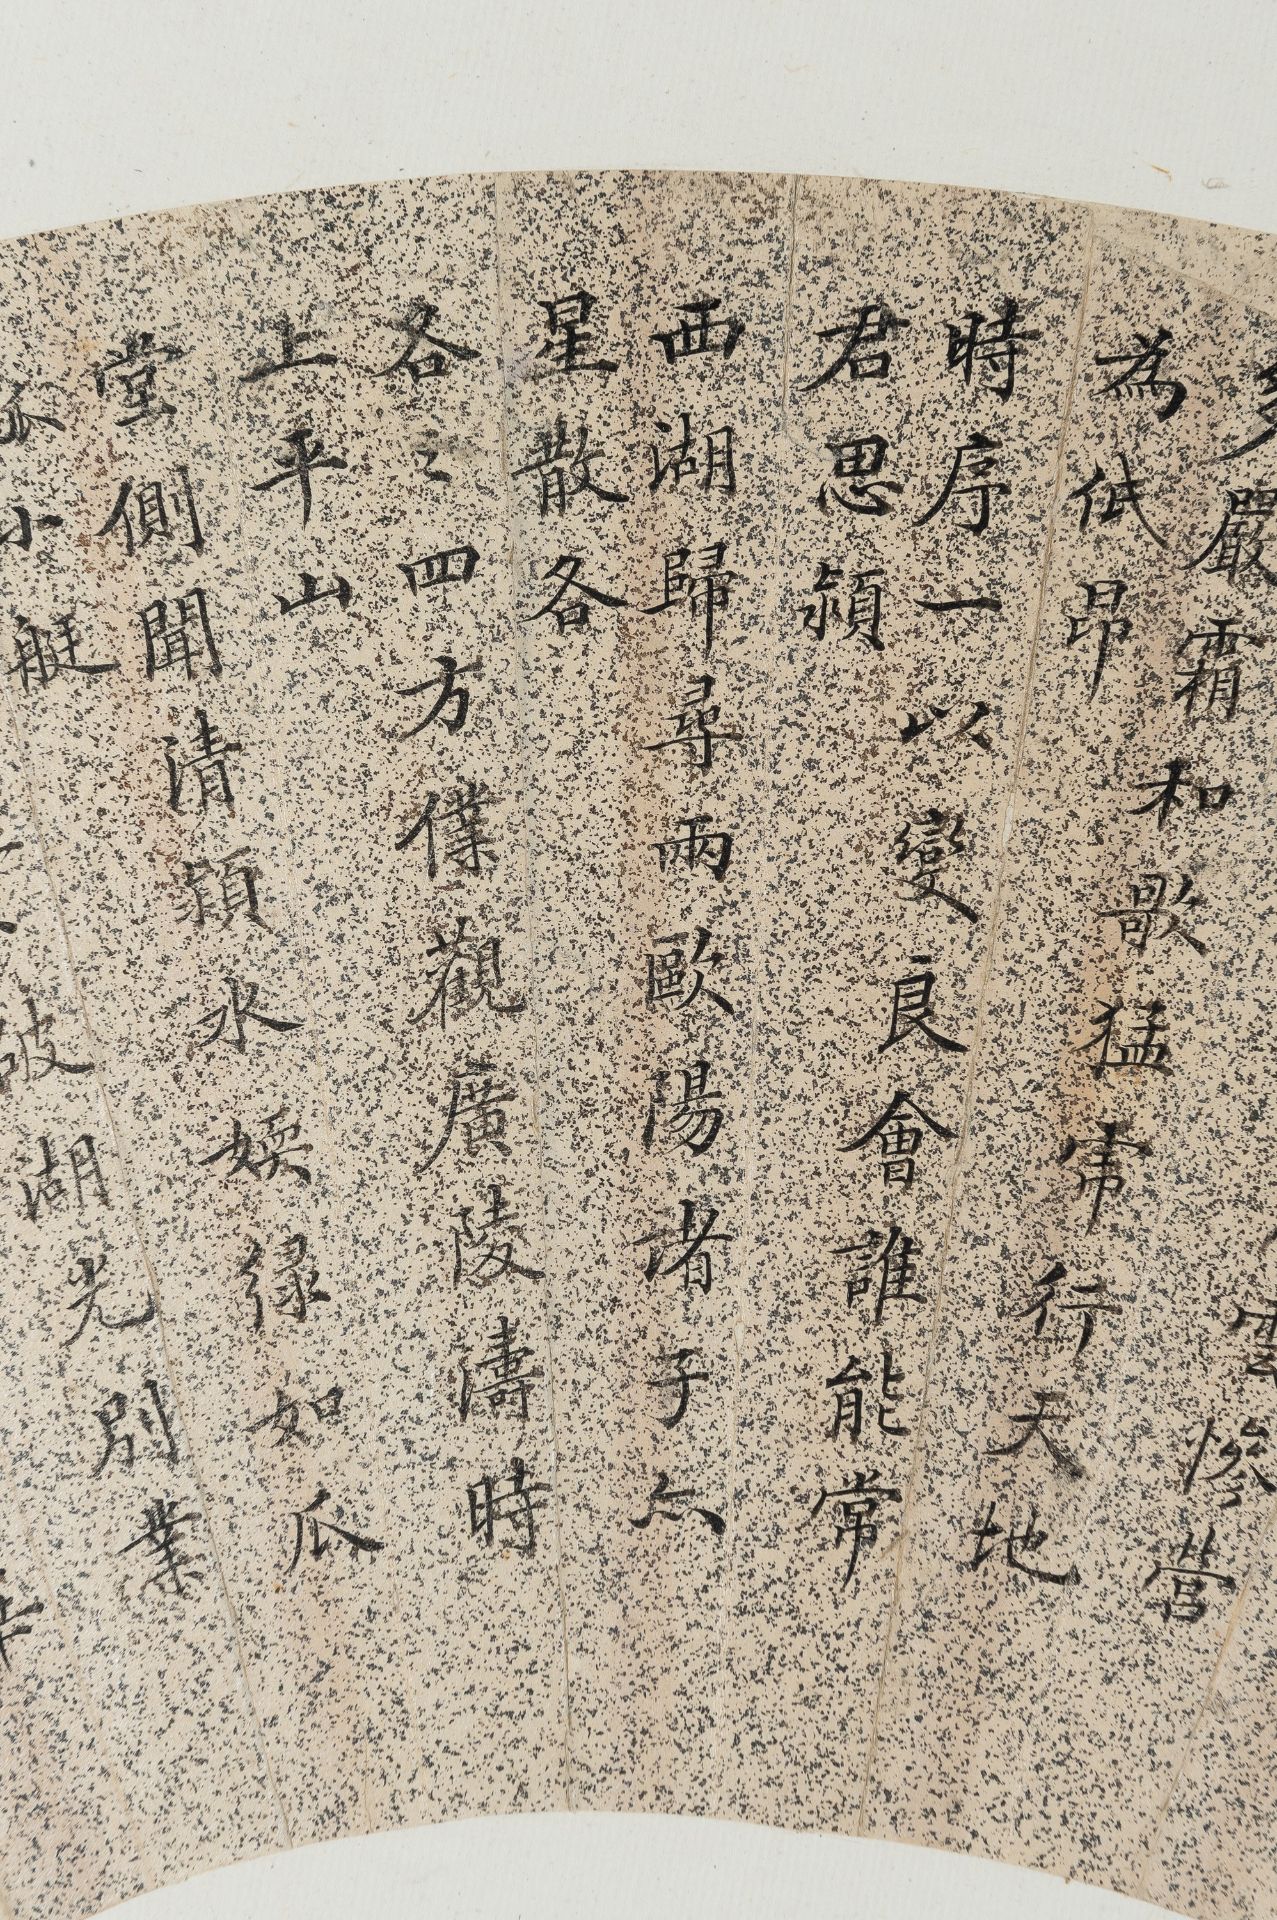 嚴霜
雲慘營
為低昂和歌猛霈行天地
時序一以變良會誰能常
君思潁
西湖歸尋兩歐陽渚子亦
星散各
各之四方僕觀廣陵濤時
上平山
堂側聞清潁水娭緑如瓜
小艇
破湖光別業